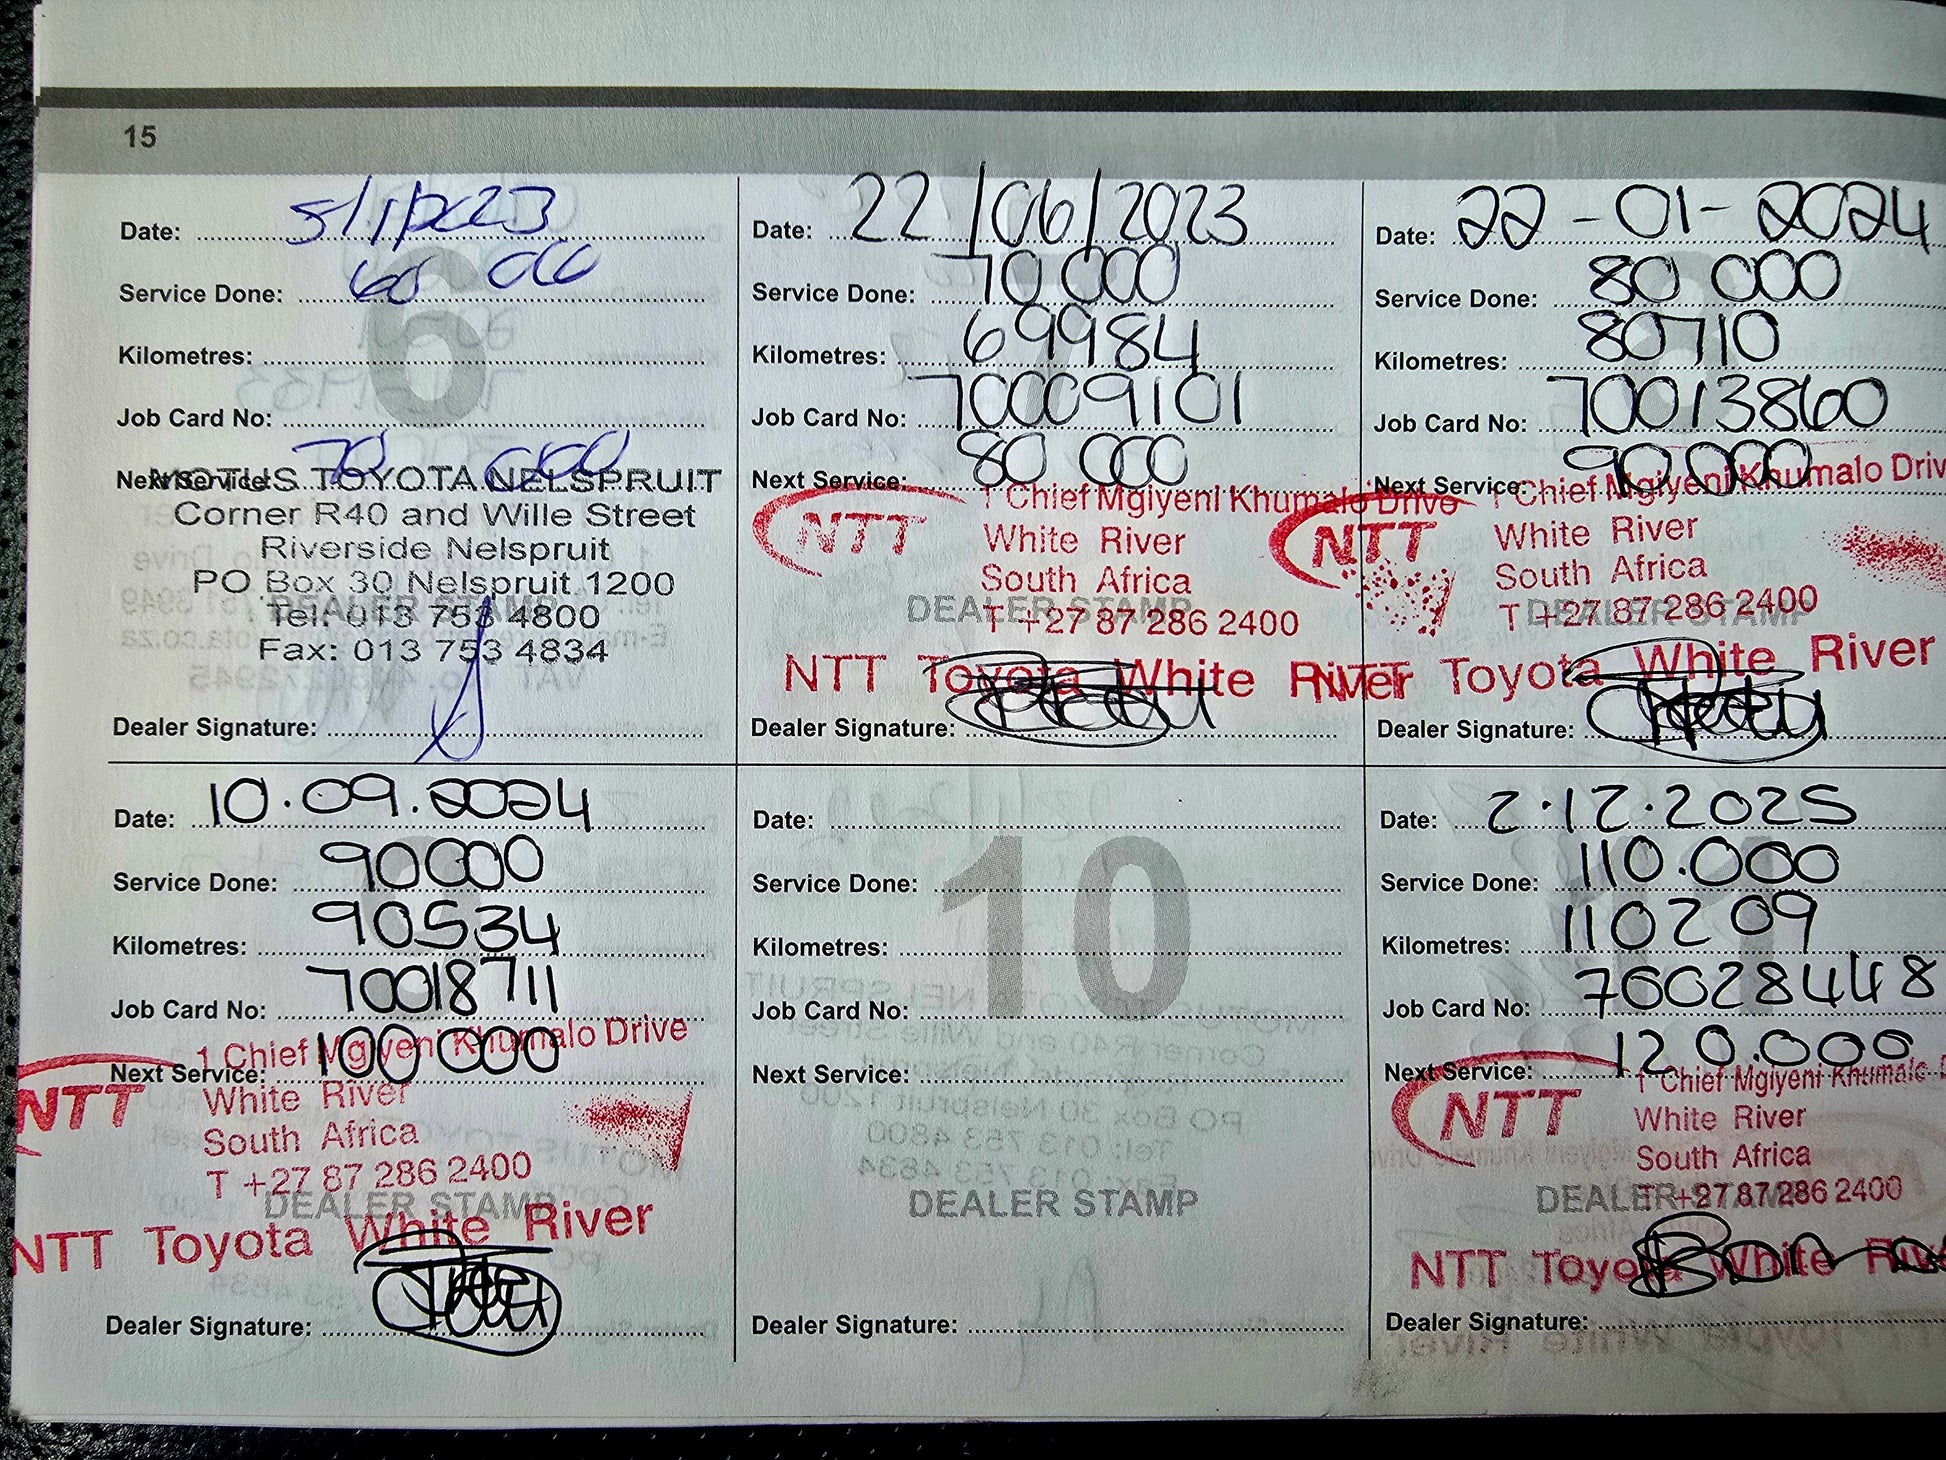 15
Date: 5/1/2023
Service Done: 60 000
Kilometres:
Job Card No:
Next Service: 70 000
MOTUS TOYOTA NELSPRUIT
Corner R40 and Wille Street
Riverside Nelspruit
PO Box 30 Nelspruit 1200
Tel: 013 753 4800
Fax: 013 753 4834
DEALER STAMP
Dealer Signature:
6
Date: 22/06/2023
Service Done: 70 000
Kilometres: 69984
Job Card No: 70009101
Next Service: 80 000
1 Chief Mgiyeni Khumalo Drive
NTT
White River
South Africa
DEALER STAMP
T +27 87 286 2400
NTT Toyota White River
Dealer Signature:
Date: 22-01-2024
Service Done: 80 000
Kilometres: 80710
Job Card No: 70013860
Next Service: 90 000
1 Chief Mgiyeni Khumalo Driv
NTT
White River
South Africa
T +27 87 286 2400
DEALER STAMP
NTT Toyota White River
Dealer Signature:
Date: 10.09.2024
Service Done: 90000
Kilometres: 90534
Job Card No: 70018711
Next Service: 100 000
1 Chief Mgiyeni Khumalo Drive
NTT
White River
South Africa
T +27 87 286 2400
DEALER STAMP
NTT Toyota White River
Dealer Signature:
Date:
Service Done:
10
Kilometres:
Job Card No:
Next Service:
DEALER STAMP
Dealer Signature:
Date: 2.12.2025
Service Done: 110.000
Kilometres: 110209
Job Card No: 760028448
Next Service: 120.000
1 Chief Mgiyeni Khumalo D
NTT
White River
South Africa
DEALER STAMP
T +27 87 286 2400
NTT Toyota White Rive
Dealer Signature: